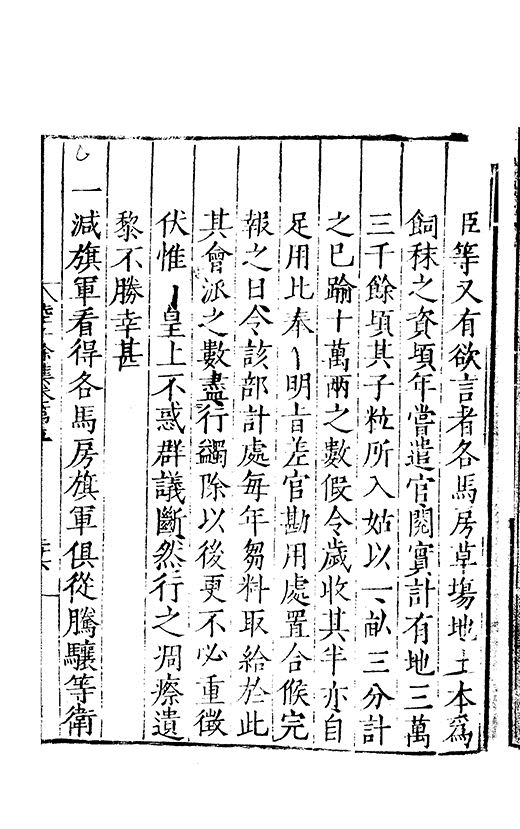 臣等又有欲言者各馬房草塲地土本爲
飼秣之資頃年嘗遣官閱實計有地三萬
三千餘頃其子粒所入姑以一畝三分計
之已踰十萬兩之數假令歲收其半亦自
足用比奉明旨差官勘用處置合候完
報之日令該部計處每年芻料取給於此
其會派之數盡行蠲除以後更不必重徵
伏惟皇上不惑群議斷然行之凋瘵遺
黎不勝幸甚
一減旗軍看得各馬房旗軍俱從騰驤等衛